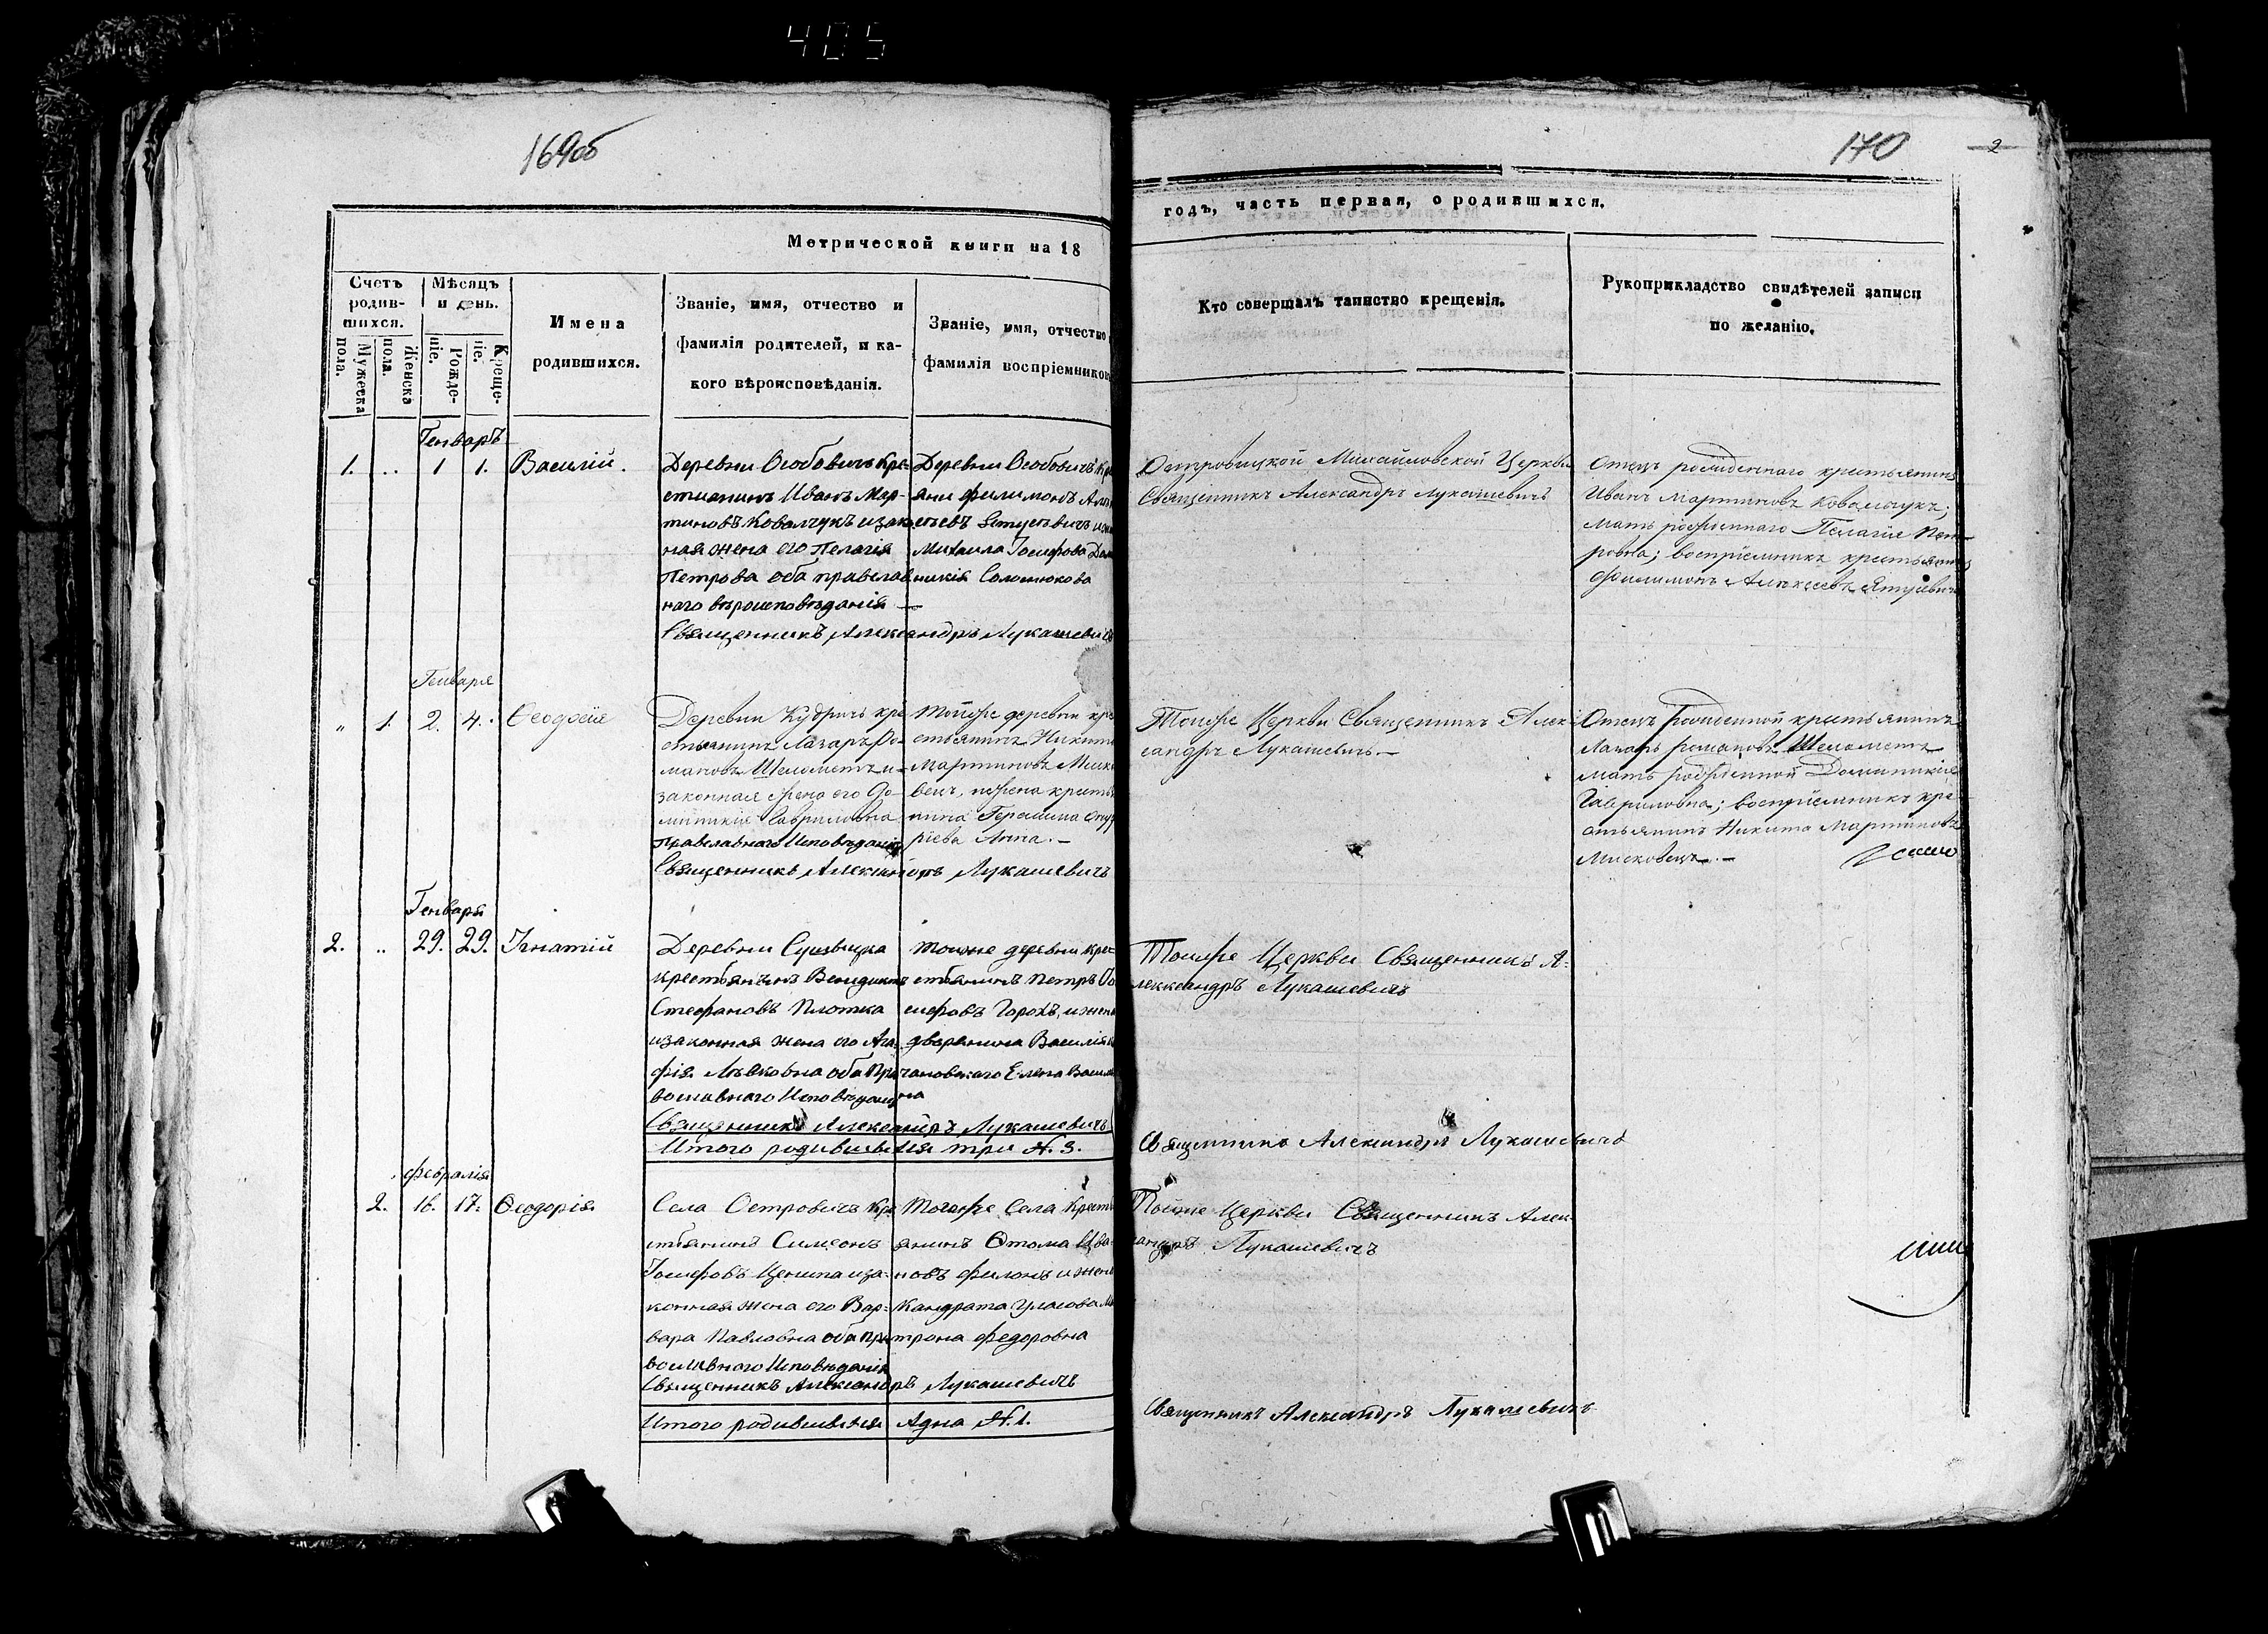 405
169об
170
2
Метрической книги на 18
годъ, часть первая, о родившихся.
Счетъ родив-шихся.
Мужеска пола.
Женска пола.
Мѣсяцъ и день.
Рожде-ніе.
Креще-ніе.
Имена
родившихся.
Званіе, имя, отчество и
фамилія родителей, и ка-
кого вѣроисповѣданія.
Званіе, имя, отчество
фамилія воспріемников
Кто совершалъ таинство крещенія.
Рукоприкладство свидѣтелей записи
по желанію.
Генварь
1. .. 1 1. Василій.
Деревни Особовичъ Кре-
стианинъ Иванъ Мар-
тиновъ Ковалчукъ изакон
ная жена его Пелагія
Петрова оба православ
наго вѣроисповѣданія —
Священникъ Александръ Лукашевичъ
Деревни Особовичъ
яни Филимонъ
Ятусевичъ
Михаила Іосифова
Соломюкова
Островицкой Михайловской Церкви
Священникъ Александръ Лукашевичъ
Отецъ рожденнаго крестьянинъ
Иванъ Мартиновъ Ковальчукъ;
мать рожденнаго Пелагія Пет-
ровна; воспріемникъ крестьянинъ
Филимонъ Алексеевъ Ятусевичъ
Генваря
„ 1. 2. 4. Ѳеодосія
Деревни Кудричъ кре
стьянинъ Лазаръ Ро-
мановъ Шелометъ и-
законная жена его До-
миникія Гавриловна
Православнаго Исповѣданія
Священникъ Александръ Лукашевичъ
Тойже деревни кре
стьянинъ Никита
Мартиновъ Миско
вец, и жена крестья
нина Герасима
Анна. —
Тоиже Церкви Священникъ Алек-
сандръ Лукашевичъ. —
Отецъ рожденной крестьянинъ
Лазаръ романовъ Шелометъ
мать рожденной Доминикія
Гавриловна; воспріемникъ кре-
стьянинъ Никита Мартиновъ
Мисковецъ. —
Генваря
2. .. 29. 29. Игнатій
Деревни Сушицка
крестьянинъ Венидиктъ
Стефановъ Плотка
изаконная жена его Ага-
фія Лѣвковна оба Пра
вославнаго Исповѣдания
Священникъ Александръ Лукашевичъ
тоиже деревни кре-
стьянинъ Петръ
сифовъ Горохъ, и жена
дворянина Василія
Елена
Тоиже Церкви Священникъ А-
лександръ Лукашевичъ
Итого родившихся три №. 3.
Священникъ Александръ Лукашевичъ
Февраля
2. 16. 17. Ѳеодорія
Села Островичъ Кре
стьянинъ Симеонъ
Іосифовъ Цепипа иза-
конная жена его Вар-
вара Павловна оба Пра
вославнаго Исповѣданія
Священникъ Александръ Лукашевичъ
Тогоже Села Крестъ
янинъ Ѳтома Ива-
новъ Филонъ и жена
Кандрата Уласова Ма
трона Федоровна
Тоиже Церкви Священникъ Алек-
сандръ Лукашевичъ
Итого родившихся Адна №. 1.
Священникъ Александръ Лукашевичъ